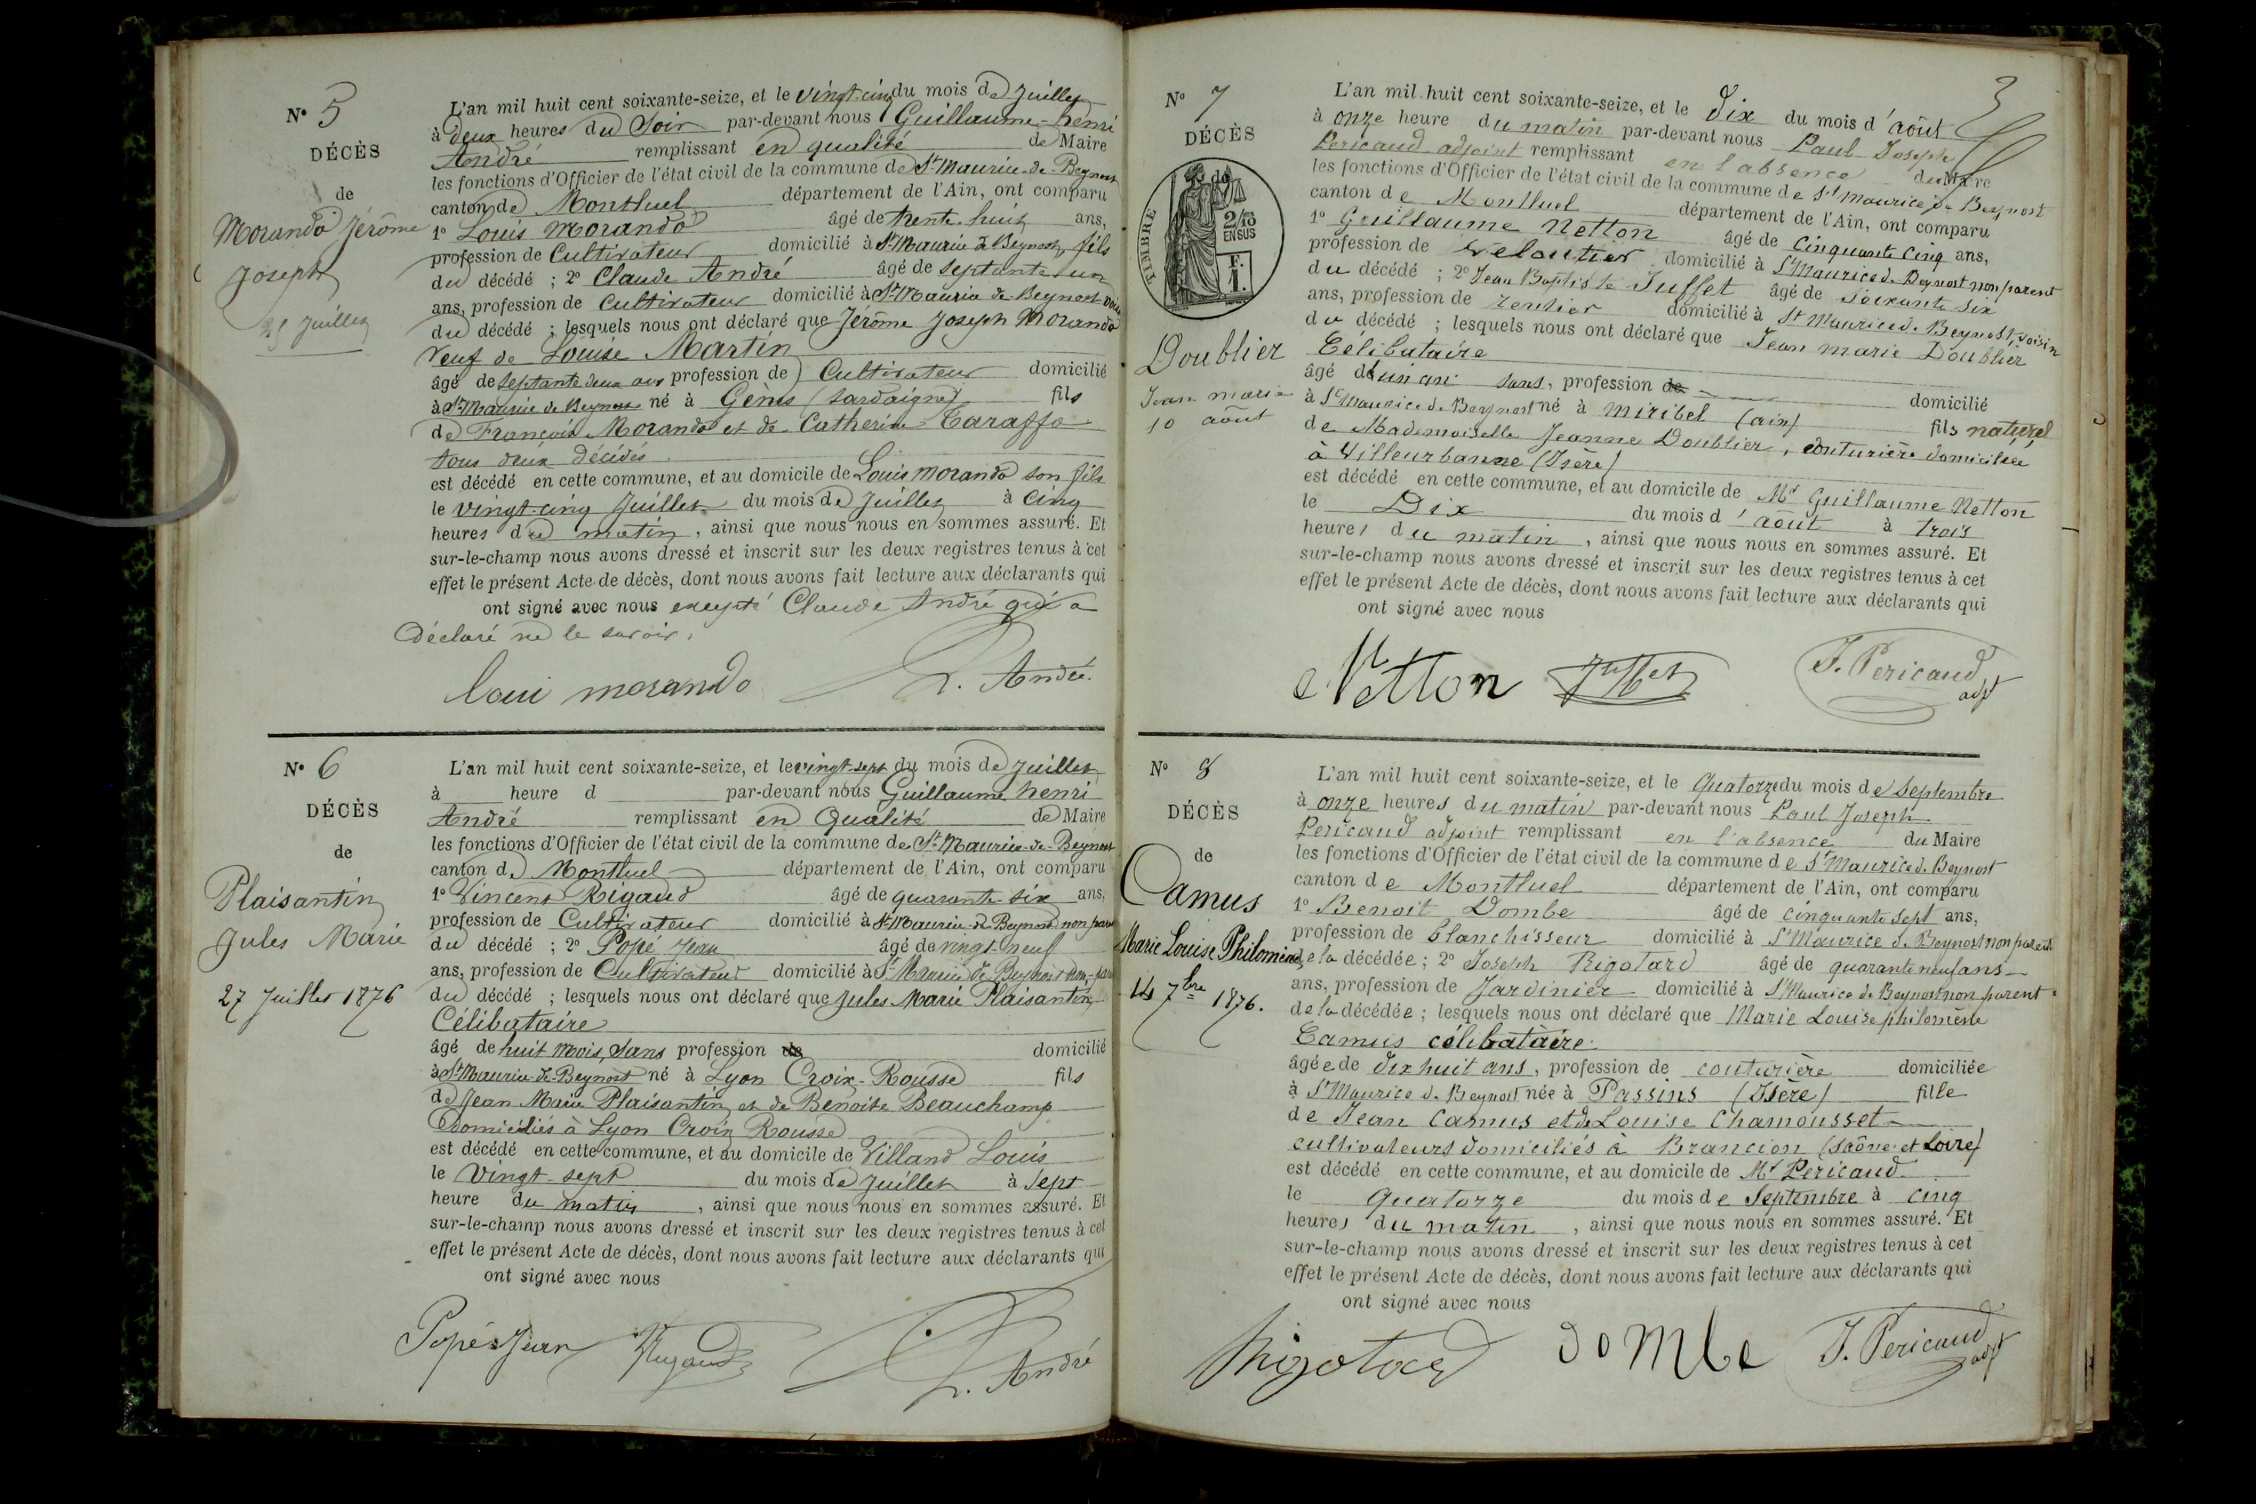 N° 5
DÉCÈS
de
Morando Jérôme
Joseph
25 Juillet
L'an mil huit cent soixante-seize, et le vingt-cinq du mois de Juillet
à deux heures du Soir par-devant nous Guillaume-henri
André remplissant en qualité de Maire
les fonctions d'Officier de l'état civil de la commune de St Maurice-de-Beynost
canton de Montluel département de l'Ain, ont comparu
1° Louis Morando âgé de trente-huit ans,
profession de Cultivateur domicilié à St Maurice de Beynost, fils
du décédé ; 2° Claude André âgé de septante-un
ans, profession de Cultivateur domicilié à St Maurice de Beynost voisin
du décédé ; lesquels nous ont déclaré que Jérôme Joseph Morando
veuf de Louise Martin
âgé de septante deux ans profession de Cultivateur domicilié
à St Maurice de Beynost né à Gènes (Sardaigne) fils
de François Morando et de Catherine Caraffo
tous deux décédés
est décédé en cette commune, et au domicile de Louis Morando son fils
le vingt-cinq Juillet du mois de Juillet à Cinq
heures du matin, ainsi que nous nous en sommes assuré. Et
sur-le-champ nous avons dressé et inscrit sur les deux registres tenus à cet
effet le présent Acte de décès, dont nous avons fait lecture aux déclarants qui
ont signé avec nous excepté Claude André qui a
déclaré ne le savoir.
loui morando
André
N° 6
DÉCÈS
de
Plaisantin
Jules Marie
27 Juillet 1876
L'an mil huit cent soixante-seize, et le vingt-sept du mois de Juillet
à heure d par-devant nous Guillaume henri
André remplissant en Qualité de Maire
les fonctions d'Officier de l'état civil de la commune de St Maurice-de-Beynost
canton de Montluel département de l'Ain, ont comparu
1° Vincent Rigaud âgé de quarante-six ans,
profession de Cultivateur domicilié à St Maurice-de-Beynost non parent
du décédé ; 2° Popé Jean âgé de vingt-neuf
ans, profession de Cultivateur domicilié à St Maurice de Beynost non-par
du décédé ; lesquels nous ont déclaré que Jules Marie Plaisantin
Célibataire
âgé de huit mois, Sans profession de domicilié
à St Maurice-de-Beynost né à Lyon Croix-Rousse fils
de Jean Marie Plaisantin et de Benoite Beauchamp
domiciliés à Lyon Croix Rousse
est décédé en cette commune, et au domicile de Villand Louis
le Vingt-sept du mois de Juillet à Sept
heure du matin, ainsi que nous nous en sommes assuré. Et
sur-le-champ nous avons dressé et inscrit sur les deux registres tenus à cet
effet le présent Acte de décès, dont nous avons fait lecture aux déclarants qui
ont signé avec nous
Popé Jean Rigaud
André
3
N° 7
DÉCÈS
de
TIMBRE
2/10
EN SUS
F.
1.
Doublier
Jean marie
10 août
L'an mil huit cent soixante-seize, et le Dix du mois d'août
à onze heure du matin par-devant nous Paul Joseph
Pericaud adjoint remplissant en l'absence du Maire
les fonctions d'Officier de l'état civil de la commune de St Maurice de Beynost
canton de Montluel département de l'Ain, ont comparu
1° Guillaume Netton âgé de cinquante cinq ans,
profession de veloutier domicilié à St Maurice de Beynost non parent
du décédé ; 2° Jean Baptiste Juffet âgé de soixante six
ans, profession de rentier domicilié à St Maurice de Beynost, voisin
du décédé ; lesquels nous ont déclaré que Jean marie Doublier
Célibataire
âgé d'un an sans, profession de domicilié
à St Maurice de Beynost né à Miribel (ain) fils naturel
de Mademoiselle Jeanne Doublier, couturière domiciliée
à Villeurbanne (Isère)
est décédé en cette commune, et au domicile de Mr Guillaume Netton
le Dix du mois d'août à trois
heures du matin, ainsi que nous nous en sommes assuré. Et
sur-le-champ nous avons dressé et inscrit sur les deux registres tenus à cet
effet le présent Acte de décès, dont nous avons fait lecture aux déclarants qui
ont signé avec nous
Netton Juffet J. Pericaud
adjt
N° 8
DÉCÈS
de
Camus
Marie Louise Philomène
14 7bre 1876.
L'an mil huit cent soixante-seize, et le Quatorze du mois de Septembre
à onze heures du matin par-devant nous Paul Joseph
Pericaud adjoint remplissant en l'absence du Maire
les fonctions d'Officier de l'état civil de la commune de St Maurice de Beynost
canton de Montluel département de l'Ain, ont comparu
1° Benoit Dombe âgé de cinquante sept ans,
profession de blanchisseur domicilié à St Maurice de Beynost non parent
de la décédée ; 2° Joseph Rigotard âgé de quarante neuf ans
ans, profession de Jardinier domicilié à St Maurice de Beynost non parent
de la décédée ; lesquels nous ont déclaré que Marie Louise philomène
Camus célibataire
âgée de dix huit ans, profession de couturière domiciliée
à St Maurice de Beynost née à Passins (Isère) fille
de Jean Camus et de Louise Chamousset
cultivateurs domiciliés à Brancion (Saône et Loire)
est décédé en cette commune, et au domicile de Mr Pericaud
le quatorze du mois de Septembre à cinq
heures du matin, ainsi que nous nous en sommes assuré. Et
sur-le-champ nous avons dressé et inscrit sur les deux registres tenus à cet
effet le présent Acte de décès, dont nous avons fait lecture aux déclarants qui
ont signé avec nous
Rigotard Dombe J. Pericaud
adjt